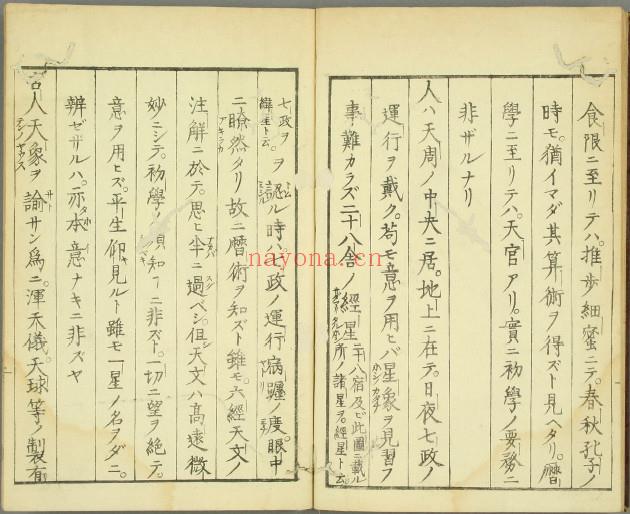 食限ニ至リテハ。推歩細蜜ニテ。春秋孔子ノ
時モ。猶イマダ其算術ヲ得ズト見ヘタリ。暦
學ニ至リテハ。天官アリ。實ニ初學ノ要務ニ
非ザルナリ
人ハ天周ノ中央ニ居。地上ニ在テ。日夜七政ノ
運行ヲ戴ク。苟モ意ヲ用ヒバ。星象ヲ見習フ
事難カラズ。二十八舎ノ經星二十八宿及ビ此圖ニ載ル所ノ諸星ヲ。經星ト云。
七政ヲ緯星ト云。ヲ認ル時ハ。七政ノ運行。宿躔ノ度。眼中
ニ瞭然タリ。故ニ暦術ヲ知ズト雖モ。六經天文ノ
注解ニ於テ。思ヒ半ニ過ベシ。但天文ハ高遠微
妙ニシテ。初學ノ知ニ非ズト。一切ニ望ヲ絶テ。
意ヲ用ヒズ。平生仰見ルト雖モ。一星ノ名ヲダニ。
辨ゼザルハ。亦本意ナキニ非ズヤ
古人天象ヲ諭サン爲ニ。渾天儀。天球等ノ製有
nayona.cn